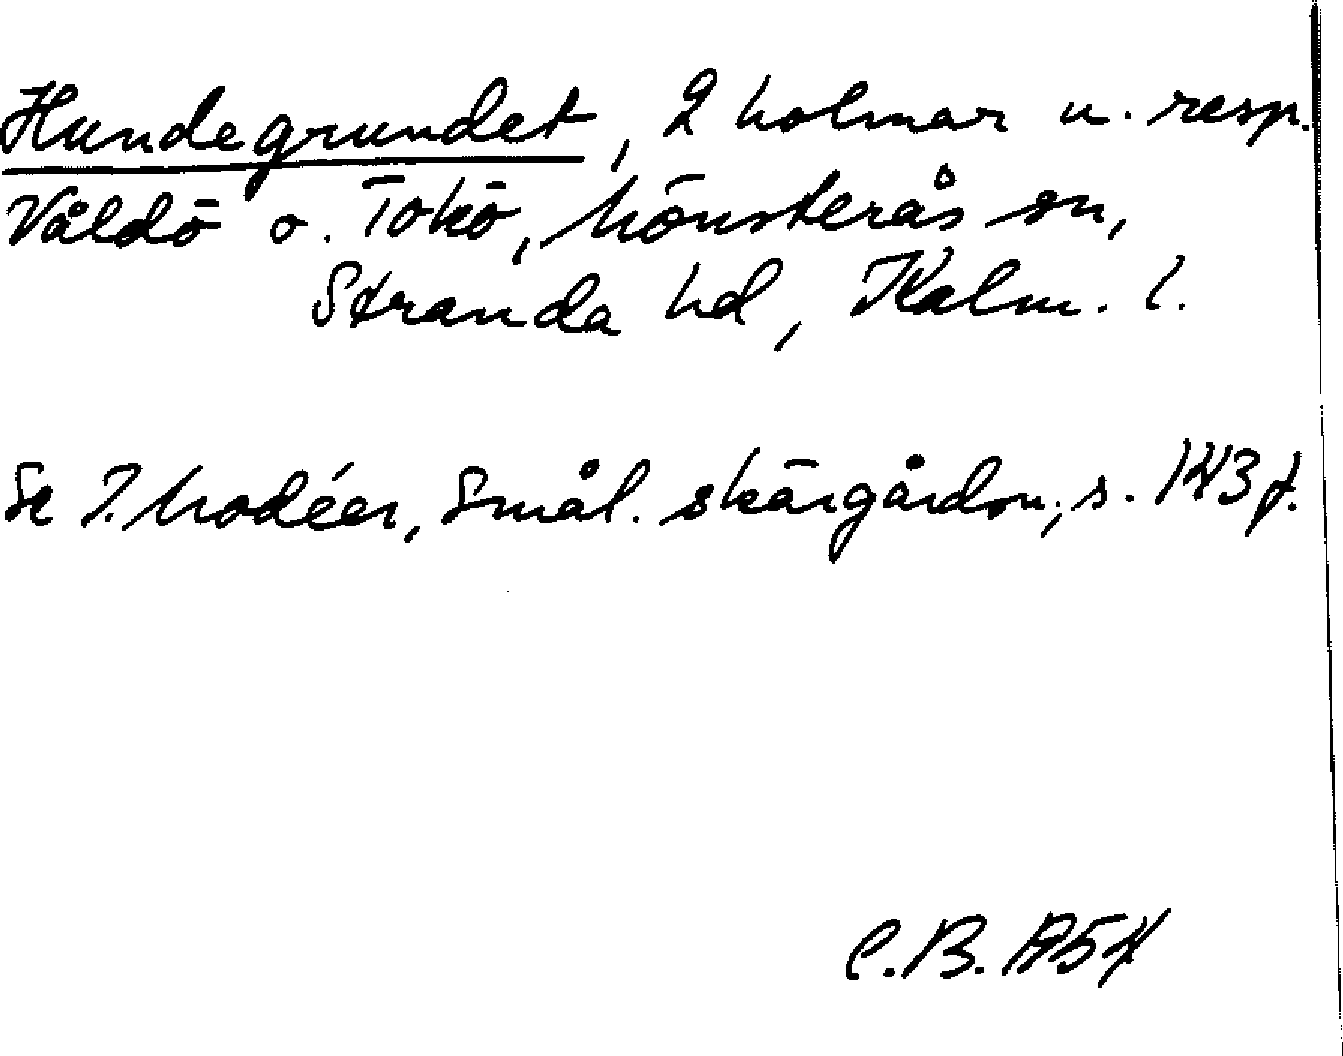 Hundegrundet, 2 holmar u. resp.
Våldö o. Tokö, Mönsterås sn,
Stranda hd, Kalm. l.
Se I. Modéer, Smål. skärgårdsn., s. 143 f.
C.B. 1954